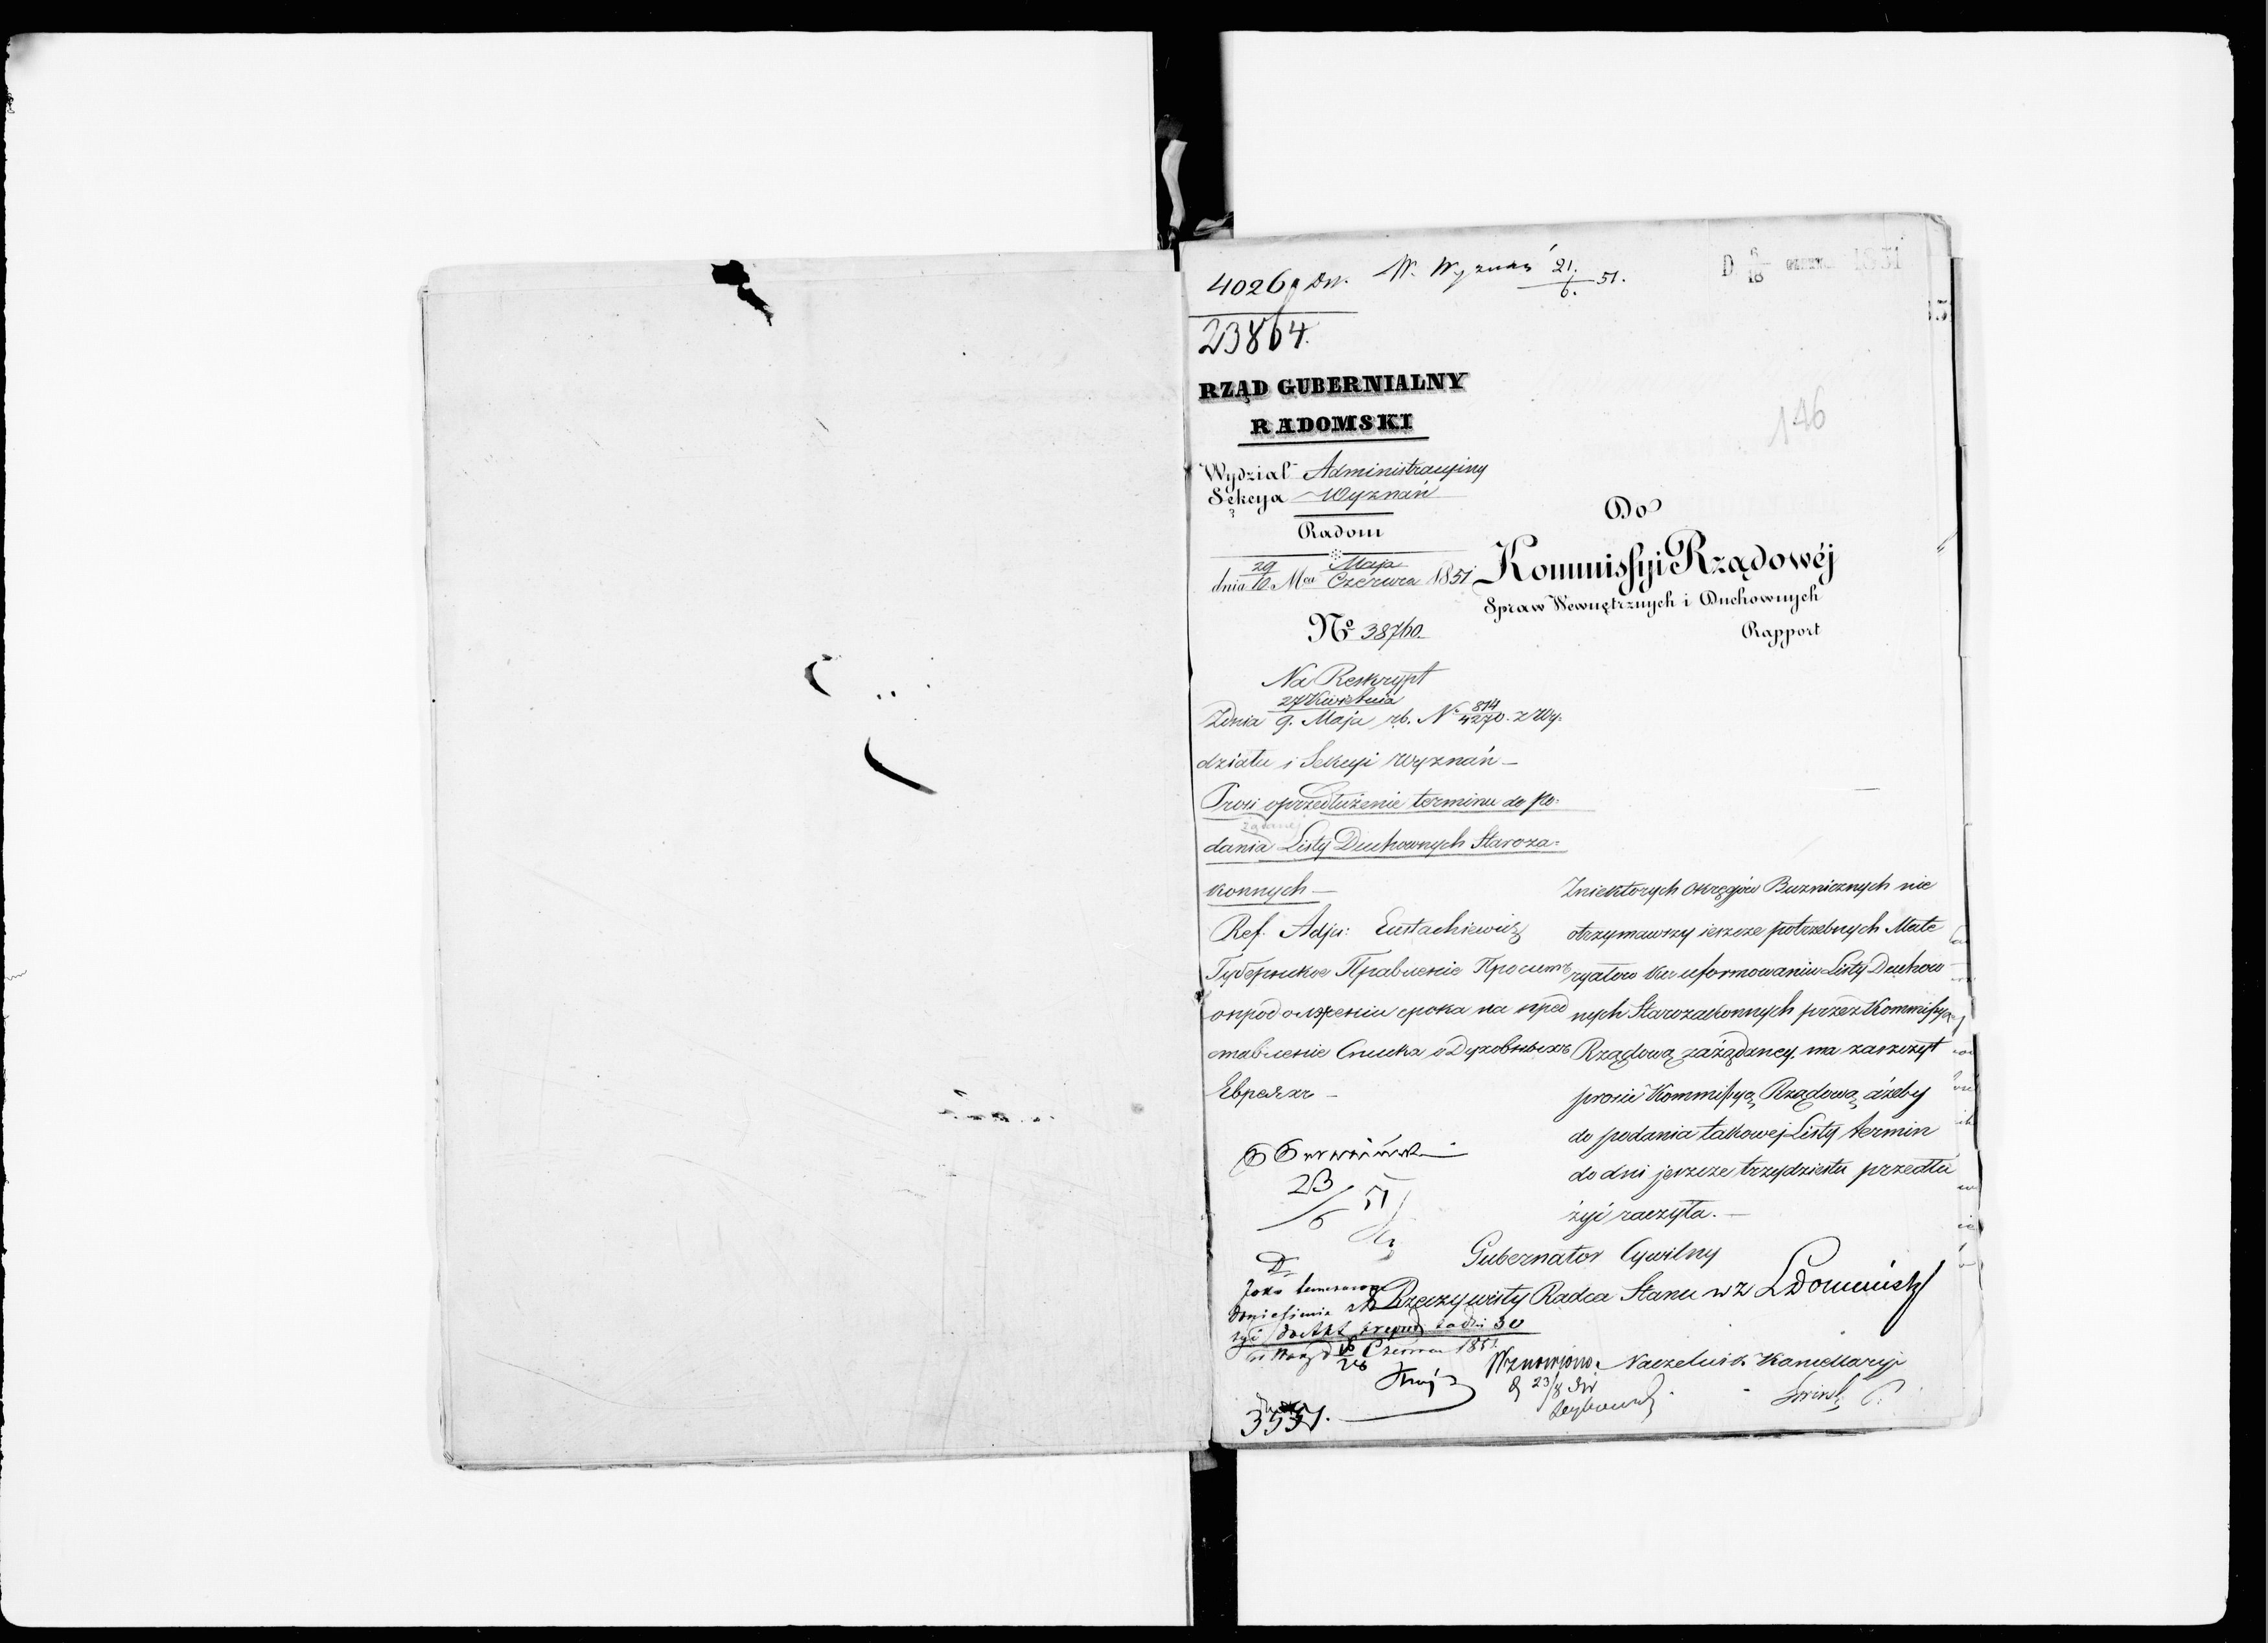 4026 Dn. W. Wyznań 21./6. 51.
D 6/18 CZERW. 1851
23864.
RZĄD GUBERNIALNY
RADOMSKI
146
Wydział Administracyjny
Sekcya Wyznań
Radom
dnia 29/10 Mca Maja/Czerwca 1851
Nº 38760.
Do
Kommissyi Rządowéj
Spraw Wewnętrznych i Duchownych
Rapport
Na Reskrypt
27 Kwietnia
Zdnia 9. Maja rb. Nº 814/4270. z Wy-
działu i Sekcyi Wyznań —
Prosi oprzedłużenie terminu do po-
żądanej
dania Listy Duchownych Staroza-
konnych —
Ref. Adju: Eustachiewicz
Губернское Правление Проситъ
опродолжении срока на пред
ставление Списка о Духовныхъ
Евреяхъ —
Zniektorych okręgów Buzniczných nie
otrzymawszy ieszcze potrzebnych Mate
ryałow ku uformowaniu Listy Duchow
nych Starozakonnych przez Kommissyą
Rządową zażądaney, ma zaszczyt
prosić Kommissyą Rządową ażeby
do podania takowej Listy termin
do dni jeszcze trzydziestu przedłu
żyć raczyła. —
23/6 51
Gubernator Cywilny
Rzeczywisty Radca Stanu wz
D
Jako
30
Czerwca 1851.
Wznowiono
23/8
Naczelnik Kancellaryi
3557.